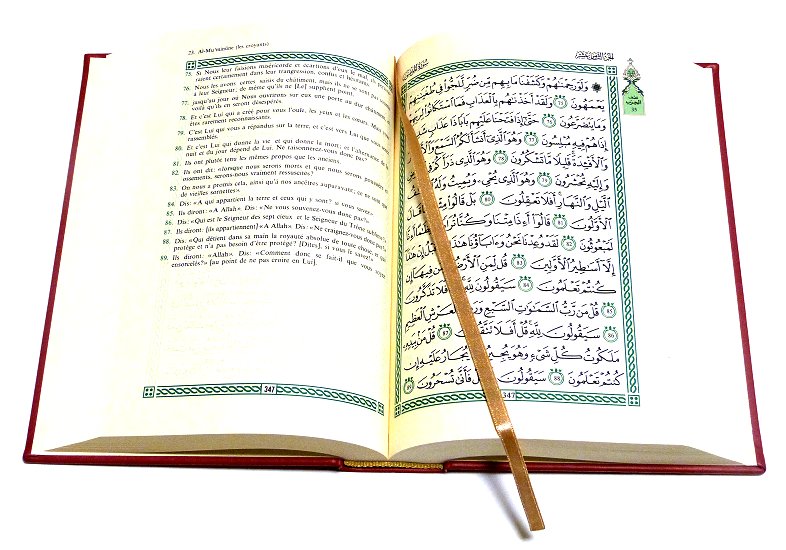 23. Al-Mu'minūne (les croyants)
75. Si Nous leur faisions miséricorde et écartions d'eux le mal,
raient certainement dans leur trangression, confus et hésitants.
76. Nous les avons certes saisis du châtiment, mais ils ne se sont pas
à leur Seigneur, de même qu'ils ne [Le] supplient point,
77. jusqu'au jour où Nous ouvrirons sur eux une porte au dur
voilà qu'ils en seront désespérés.
78. Et c'est Lui qui a créé pour vous l'ouïe, les yeux et les cœurs. Mais
êtes rarement reconnaissants.
79. C'est Lui qui vous a répandus sur la terre, et c'est vers Lui que vous
rassemblés.
80. Et c'est Lui qui donne la vie et qui donne la mort; et l'alternance de
nuit et du jour dépend de Lui. Ne raisonnerez-vous donc pas?
81. Ils ont plutôt tenu les mêmes propos que les anciens.
82. Ils ont dit: «lorsque nous serons morts et que nous serons poussière et
ossements, serons-nous vraiment ressuscités?
83. On nous a promis cela, ainsi qu'à nos ancêtres auparavant; ce ne sont que
de vieilles sornettes».
84. Dis: «A qui appartient la terre et ceux qui y sont? si vous savez».
85. Ils diront: «A Allah». Dis: «Ne vous souvenez-vous donc pas?».
86. Dis: «Qui est le Seigneur des sept cieux et le Seigneur du Trône sublime?»
87. Ils diront: [ils appartiennent] «A Allah». Dis: «Ne craignez-vous donc pas?»
88. Dis: «Qui détient dans sa main la royauté absolue de toute chose, et qui
protège et n'a pas besoin d'être protégé? [Dites], si vous le savez!».
89. Ils diront: «Allah». Dis: «Comment donc se fait-il que vous soyez
ensorcelés?» [au point de ne pas croire en Lui].
347
وَلَوْ رَحِمْنَٰهُمْ وَكَشَفْنَا مَا بِهِم مِّن ضُرٍّ لَّلَجُّوا۟ فِى طُغْيَٰنِهِمْ
يَعْمَهُونَ ٧٥ وَلَقَدْ أَخَذْنَٰهُم بِٱلْعَذَابِ فَمَا ٱسْتَكَانُوا۟ لِرَبِّهِمْ
وَمَا يَتَضَرَّعُونَ ٧٦ حَتَّىٰٓ إِذَا فَتَحْنَا عَلَيْهِم بَابًا ذَا عَذَابٍ
إِذَا هُمْ فِيهِ مُبْلِسُونَ ٧٧ وَهُوَ ٱلَّذِىٓ أَنشَأَ لَكُمُ ٱلسَّمْعَ
وَٱلْأَفْـِٔدَةَ قَلِيلًا مَّا تَشْكُرُونَ ٧٨ وَهُوَ ٱلَّذِى ذَرَأَكُمْ
وَإِلَيْهِ تُحْشَرُونَ ٧٩ وَهُوَ ٱلَّذِى يُحْىِۦ وَيُمِيتُ وَلَهُ
ٱلَّيْلِ وَٱلنَّهَارِ أَفَلَا تَعْقِلُونَ ٨٠ بَلْ قَالُوا۟
ٱلْأَوَّلُونَ ٨١ قَالُوٓا۟ أَءِذَا مِتْنَا وَكُنَّا
لَمَبْعُوثُونَ ٨٢ لَقَدْ وُعِدْنَا نَحْنُ وَءَابَآؤُنَا هَٰذَا
إِلَّآ أَسَٰطِيرُ ٱلْأَوَّلِينَ ٨٣ قُل لِّمَنِ ٱلْأَرْضُ وَمَن فِيهَآ إِن
كُنتُمْ تَعْلَمُونَ ٨٤ سَيَقُولُونَ لِلَّهِ قُلْ أَفَلَا تَذَكَّرُونَ
٨٥ قُلْ مَن رَّبُّ ٱلسَّمَٰوَٰتِ ٱلسَّبْعِ وَرَبُّ ٱلْعَرْشِ ٱلْعَظِيمِ
٨٦ سَيَقُولُونَ لِلَّهِ قُلْ أَفَلَا تَتَّقُونَ ٨٧ قُلْ مَنۢ بِيَدِهِۦ
مَلَكُوتُ كُلِّ شَىْءٍ وَهُوَ يُجِيرُ وَلَا يُجَارُ عَلَيْهِ إِن
كُنتُمْ تَعْلَمُونَ ٨٨ سَيَقُولُونَ لِلَّهِ قُلْ فَأَنَّىٰ تُسْحَرُونَ ٨٩
347